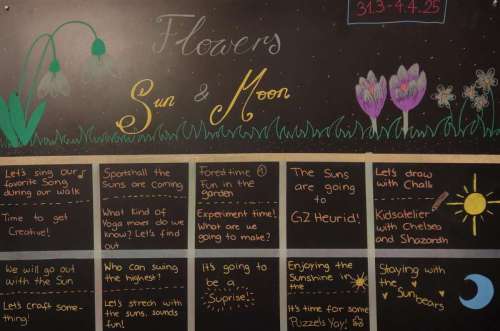 31.3-4.4.25
Flowers
Sun & Moon
Let's sing our
favorite Song
during our walk
Time to get
Creative!
Sportshall the
Suns are coming
What kind of
Yoga moves do we
know? Let's find
out
Forest time
Fun in the
garden
Experiment time!
What are we
going to make?
The Suns
are going
to
GZ Heurid!
Let's draw
with Chalk
Kidsatelier
with Chelsea
and Shazardh
We will go out
with the Sun
Let's craft some-
thing!
Who can swing
the highest?
Let's strech with
the suns, sounds
fun!
It's going to
be a
Suprise!
Enjoying the
Sunshine in
the
It's time for some
Puzzels Yay!
Staying with
the Sun
bears